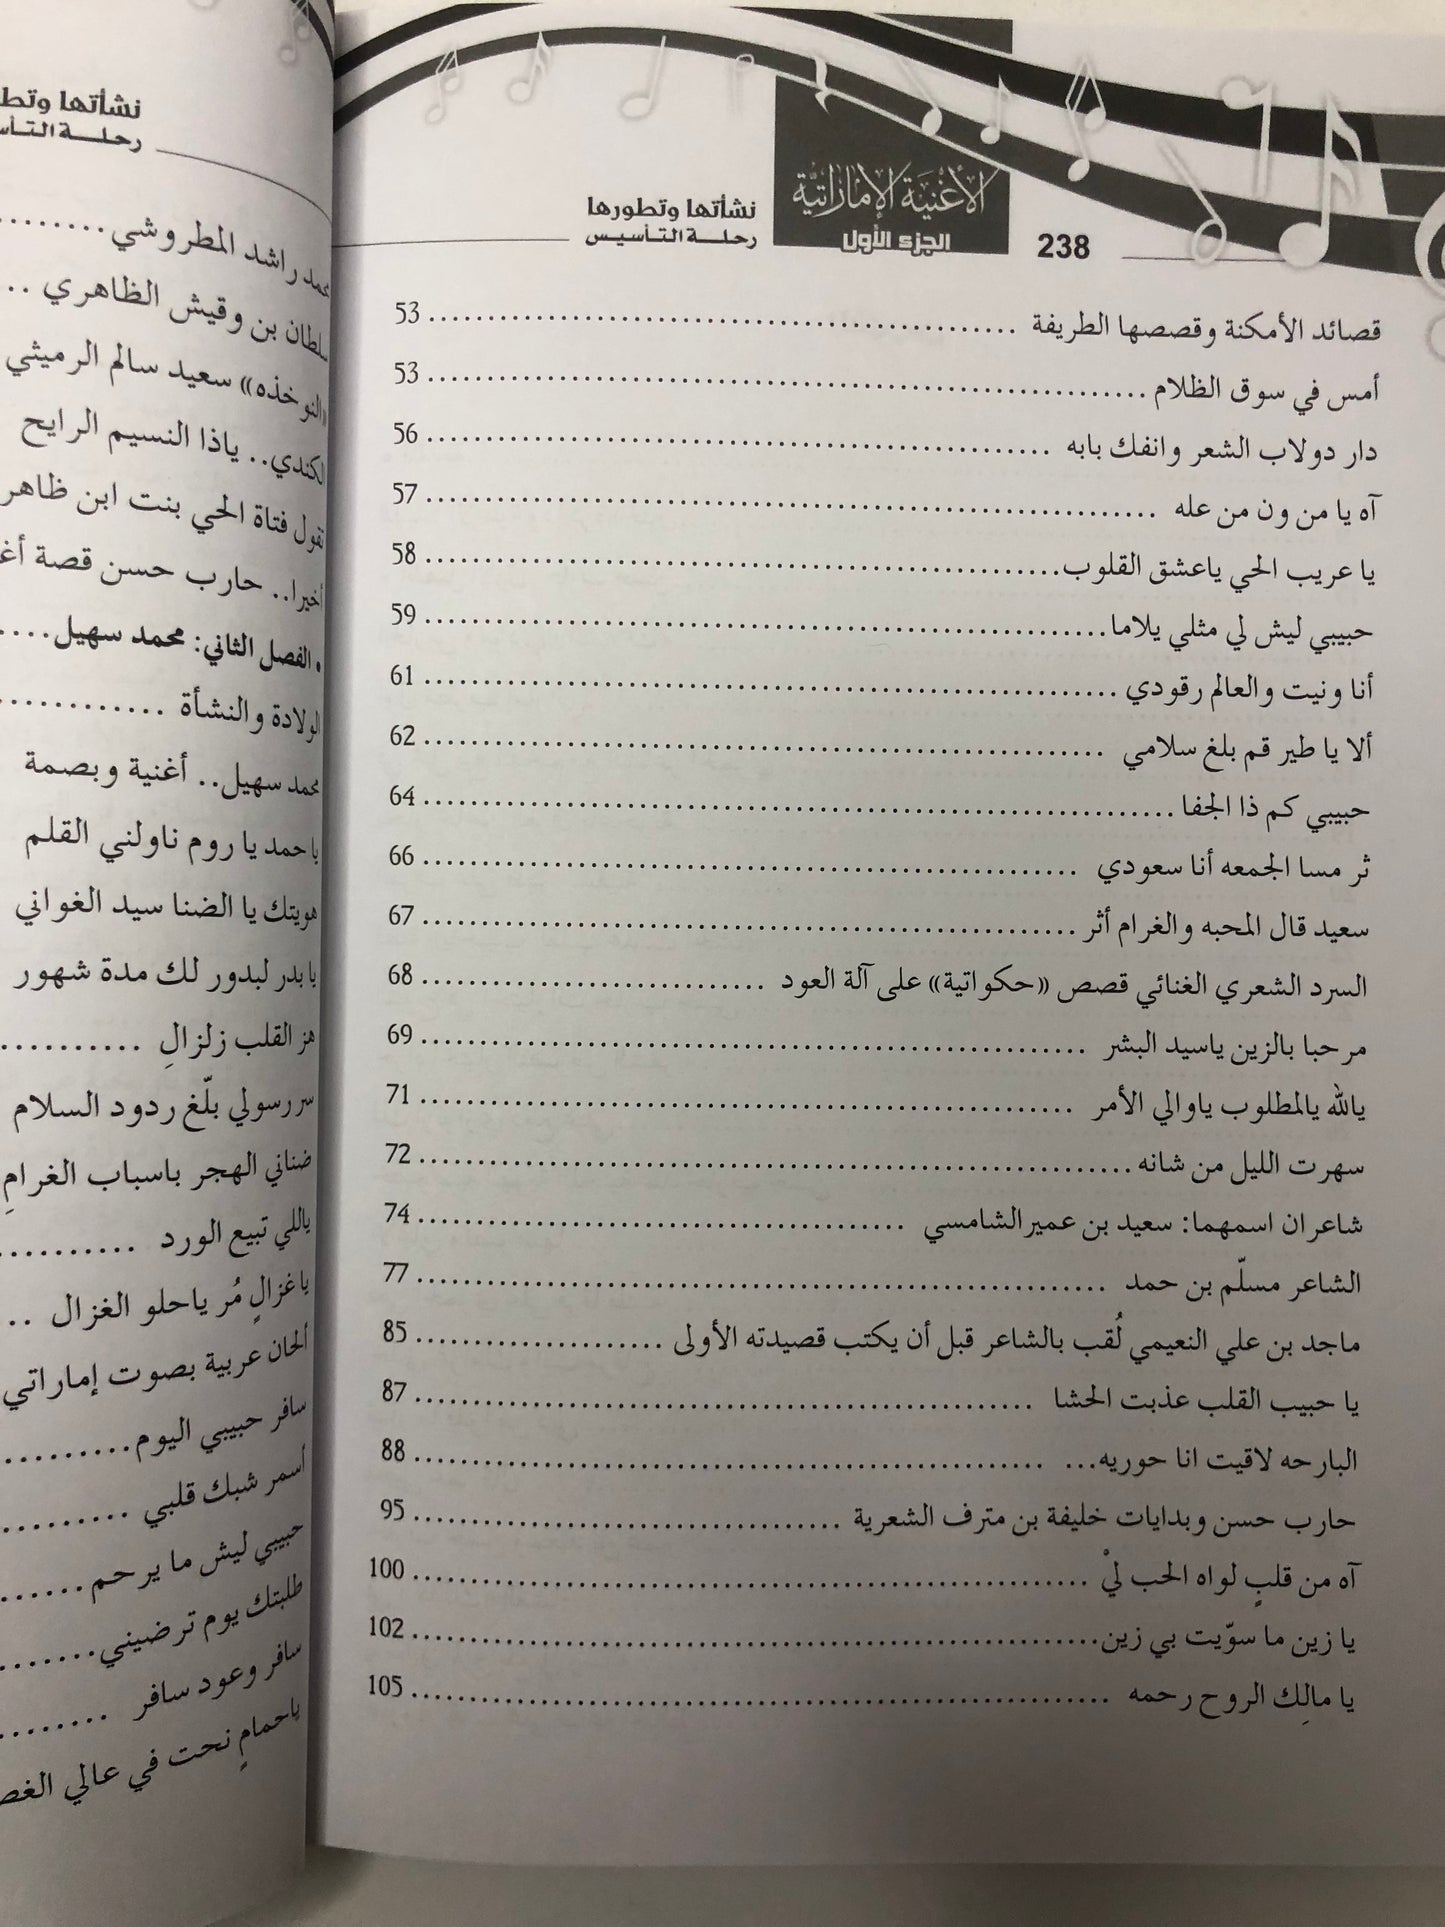 الأغنية الإماراتية
الجزء الأول
نشأتها وتطورها
رحلة التأسيس
238
قصائد الأمكنة وقصصها الطريفة ........ 53
أمس في سوق الظلام ........ 53
دار دولاب الشعر وانفك بابه ........ 56
آه يا من ون من عله ........ 57
يا عريب الحي ياعشق القلوب ........ 58
حبيبي ليش لي مثلي يلاما ........ 59
أنا ونيت والعالم رقودي ........ 61
ألا يا طير قم بلغ سلامي ........ 62
حبيبي كم ذا الجفا ........ 64
ثر مسا الجمعه أنا سعودي ........ 66
سعيد قال المحبه والغرام أثر ........ 67
السرد الشعري الغنائي قصص «حكواتية» على آلة العود ........ 68
مرحبا بالزين ياسيد البشر ........ 69
يالله يالمطلوب ياوالي الأمر ........ 71
سهرت الليل من شانه ........ 72
شاعران اسمهما: سعيد بن عمير الشامسي ........ 74
الشاعر مسلّم بن حمد ........ 77
ماجد بن علي النعيمي لُقب بالشاعر قبل أن يكتب قصيدته الأولى ........ 85
يا حبيب القلب عذبت الحشا ........ 87
البارحه لاقيت انا حوريه... ........ 88
حارب حسن وبدايات خليفة بن مترف الشعرية ........ 95
آه من قلبٍ لواه الحب ليْ ........ 100
يا زين ما سوّيت بي زين ........ 102
يا مالِك الروح رحمه ........ 105
نشأتها
رحلة
راشد المطروشي ........
سلطان بن وقيش الظاهري ..
«النوخذه» سعيد سالم الرميثي
الكندي.. ياذا النسيم الرايح
تقول فتاة الحي بنت ابن ظاهر
أخيرا.. حارب حسن قصة
• الفصل الثاني: محمد سهيل ....
الولادة والنشأة ........
محمد سهيل.. أغنية وبصمة
يا حمد يا روم ناولني القلم
هويتك يا الضنا سيد الغواني
يا بدر لبدور لك مدة شهور
هز القلب زلزالِ ........
سر رسولي بلّغ ردود السلام
ضناني الهجر باسباب الغرامِ
ياللي تبيع الورد ........
يا غزالٍ مُر ياحلو الغزال ..
ألحان عربية بصوت إماراتي
سافر حبيبي اليوم ........
أسمر شبك قلبي ........
حبيبي ليش ما يرحم ......
طلبتك يوم ترضيني .......
سافر وعود سافر ........
ياحمامٍ نحت في عالي